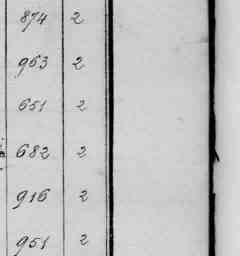 874 2
953 2
651 2
682 2
916 2
951 2